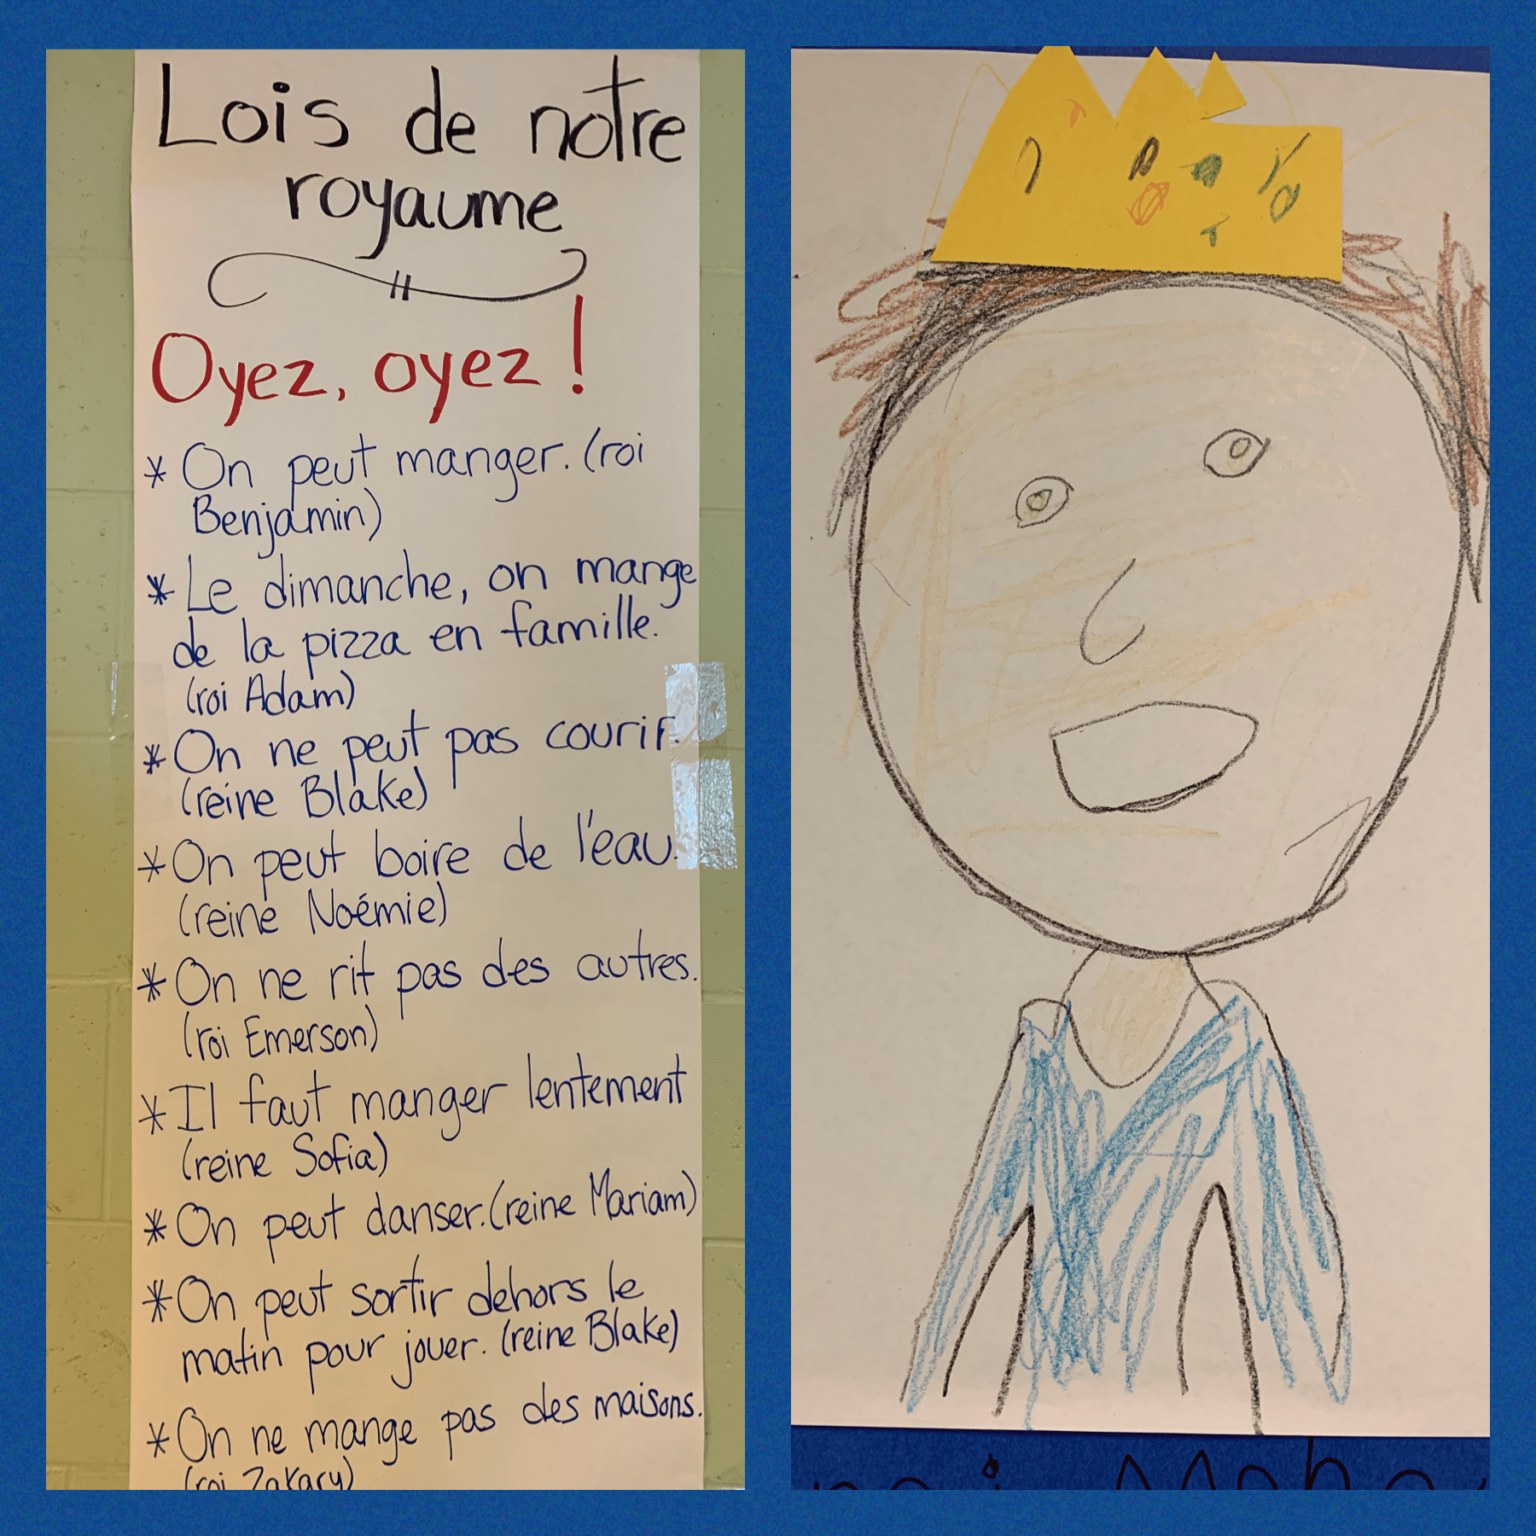 Lois de notre
royaume
Oyez, oyez !
* On peut manger. (roi
Benjamin)
* Le dimanche, on mange
de la pizza en famille.
(roi Adam)
* On ne peut pas courir.
(reine Blake)
* On peut boire de l'eau.
(reine Noémie)
* On ne rit pas des autres.
(roi Emerson)
* Il faut manger lentement
(reine Sofia)
* On peut danser. (reine Mariam)
* On peut sortir dehors le
matin pour jouer. (reine Blake)
* On ne mange pas des maisons.
(roi Zakary)
roi